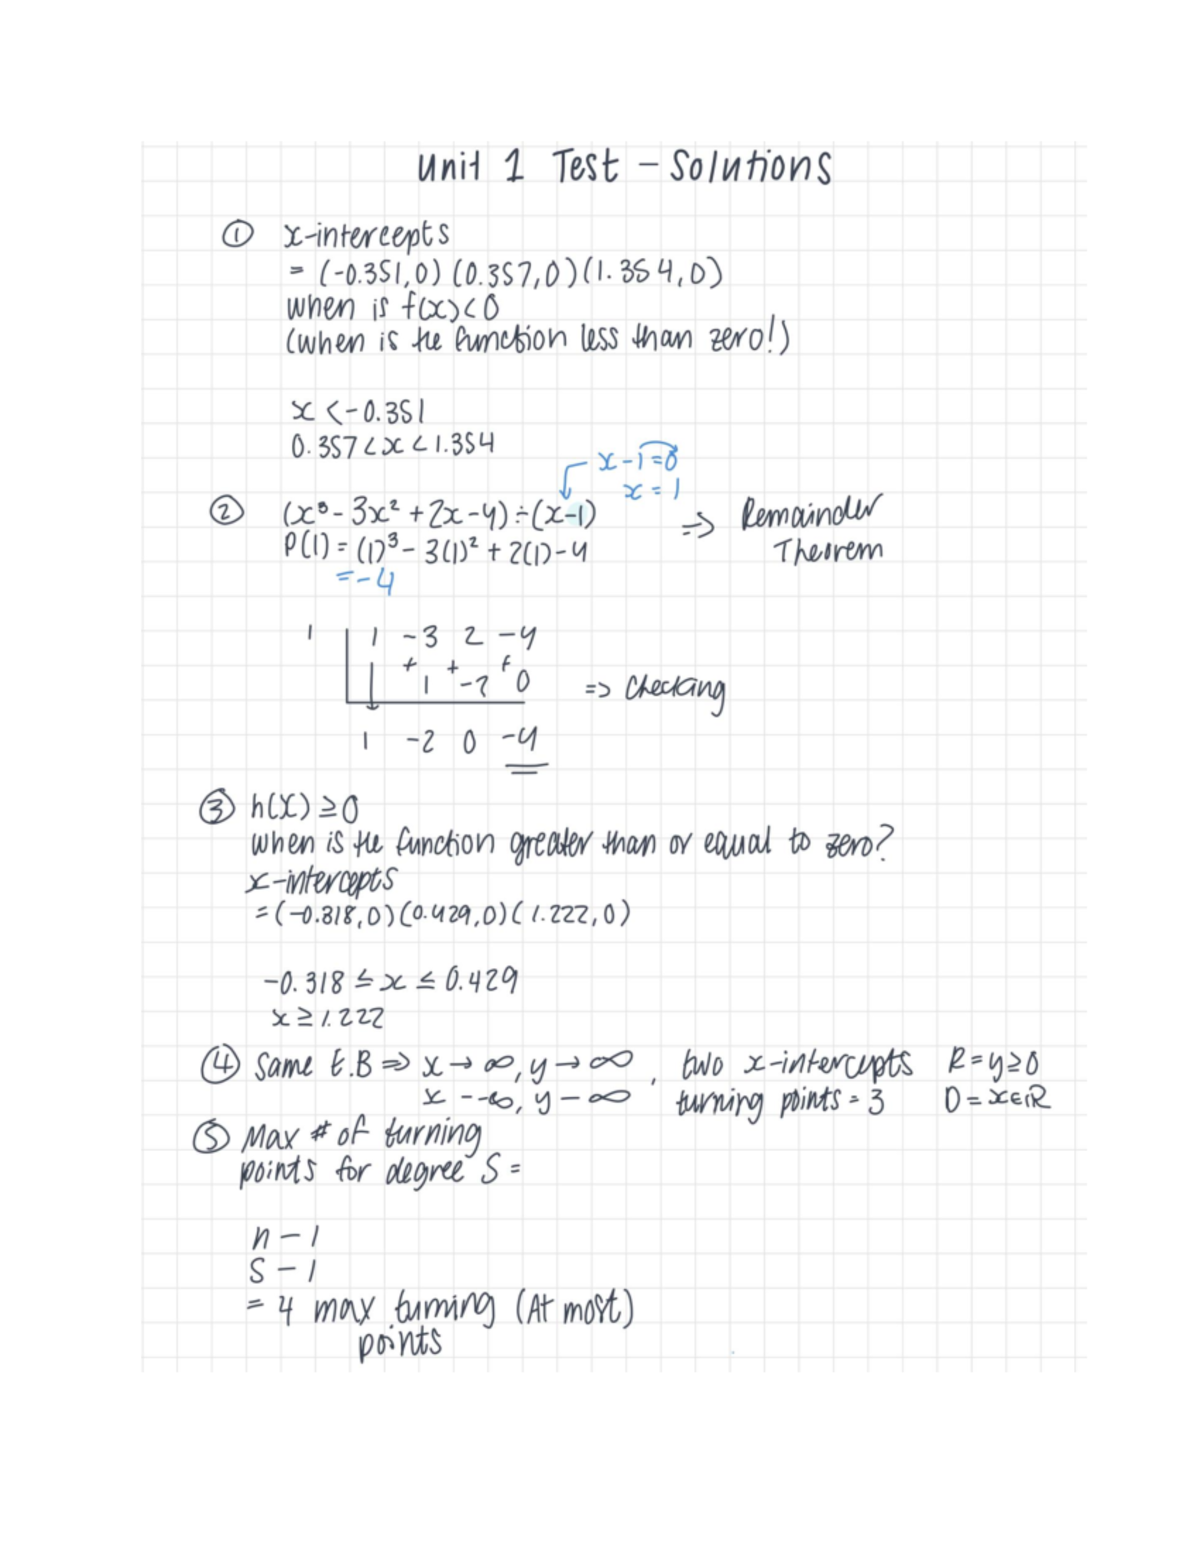 Unit 1 Test - Solutions
① x-intercepts
= (-0.351,0) (0.357,0) (1.354,0)
when is f(x)<0
(when is the function less than zero!)
x <-0.351
0.357<x<1.354
x-1=0
x=1
② (x³- 3x² + 2x-4)÷(x-1) => Remainder
P(1) = (1)³- 3(1)² + 2(1)-4 Theorem
=-4
1 1 -3 2 -4
+ + +
1 -2 0 => Checking
1 -2 0 -4
③ h(x) ≥0
when is the function greater than or equal to zero?
x-intercepts
= (-0.318,0) (0.429,0) (1.222,0)
-0.318 ≤ x ≤ 0.429
x ≥ 1.222
④ Same E.B => x → ∞, y → ∞, two x-intercepts R = y≥0
x --∞, y - ∞ turning points = 3 D = x∈ℝ
⑤ Max # of turning
points for degree 5 =
n - 1
5 - 1
= 4 max turning (At most)
points